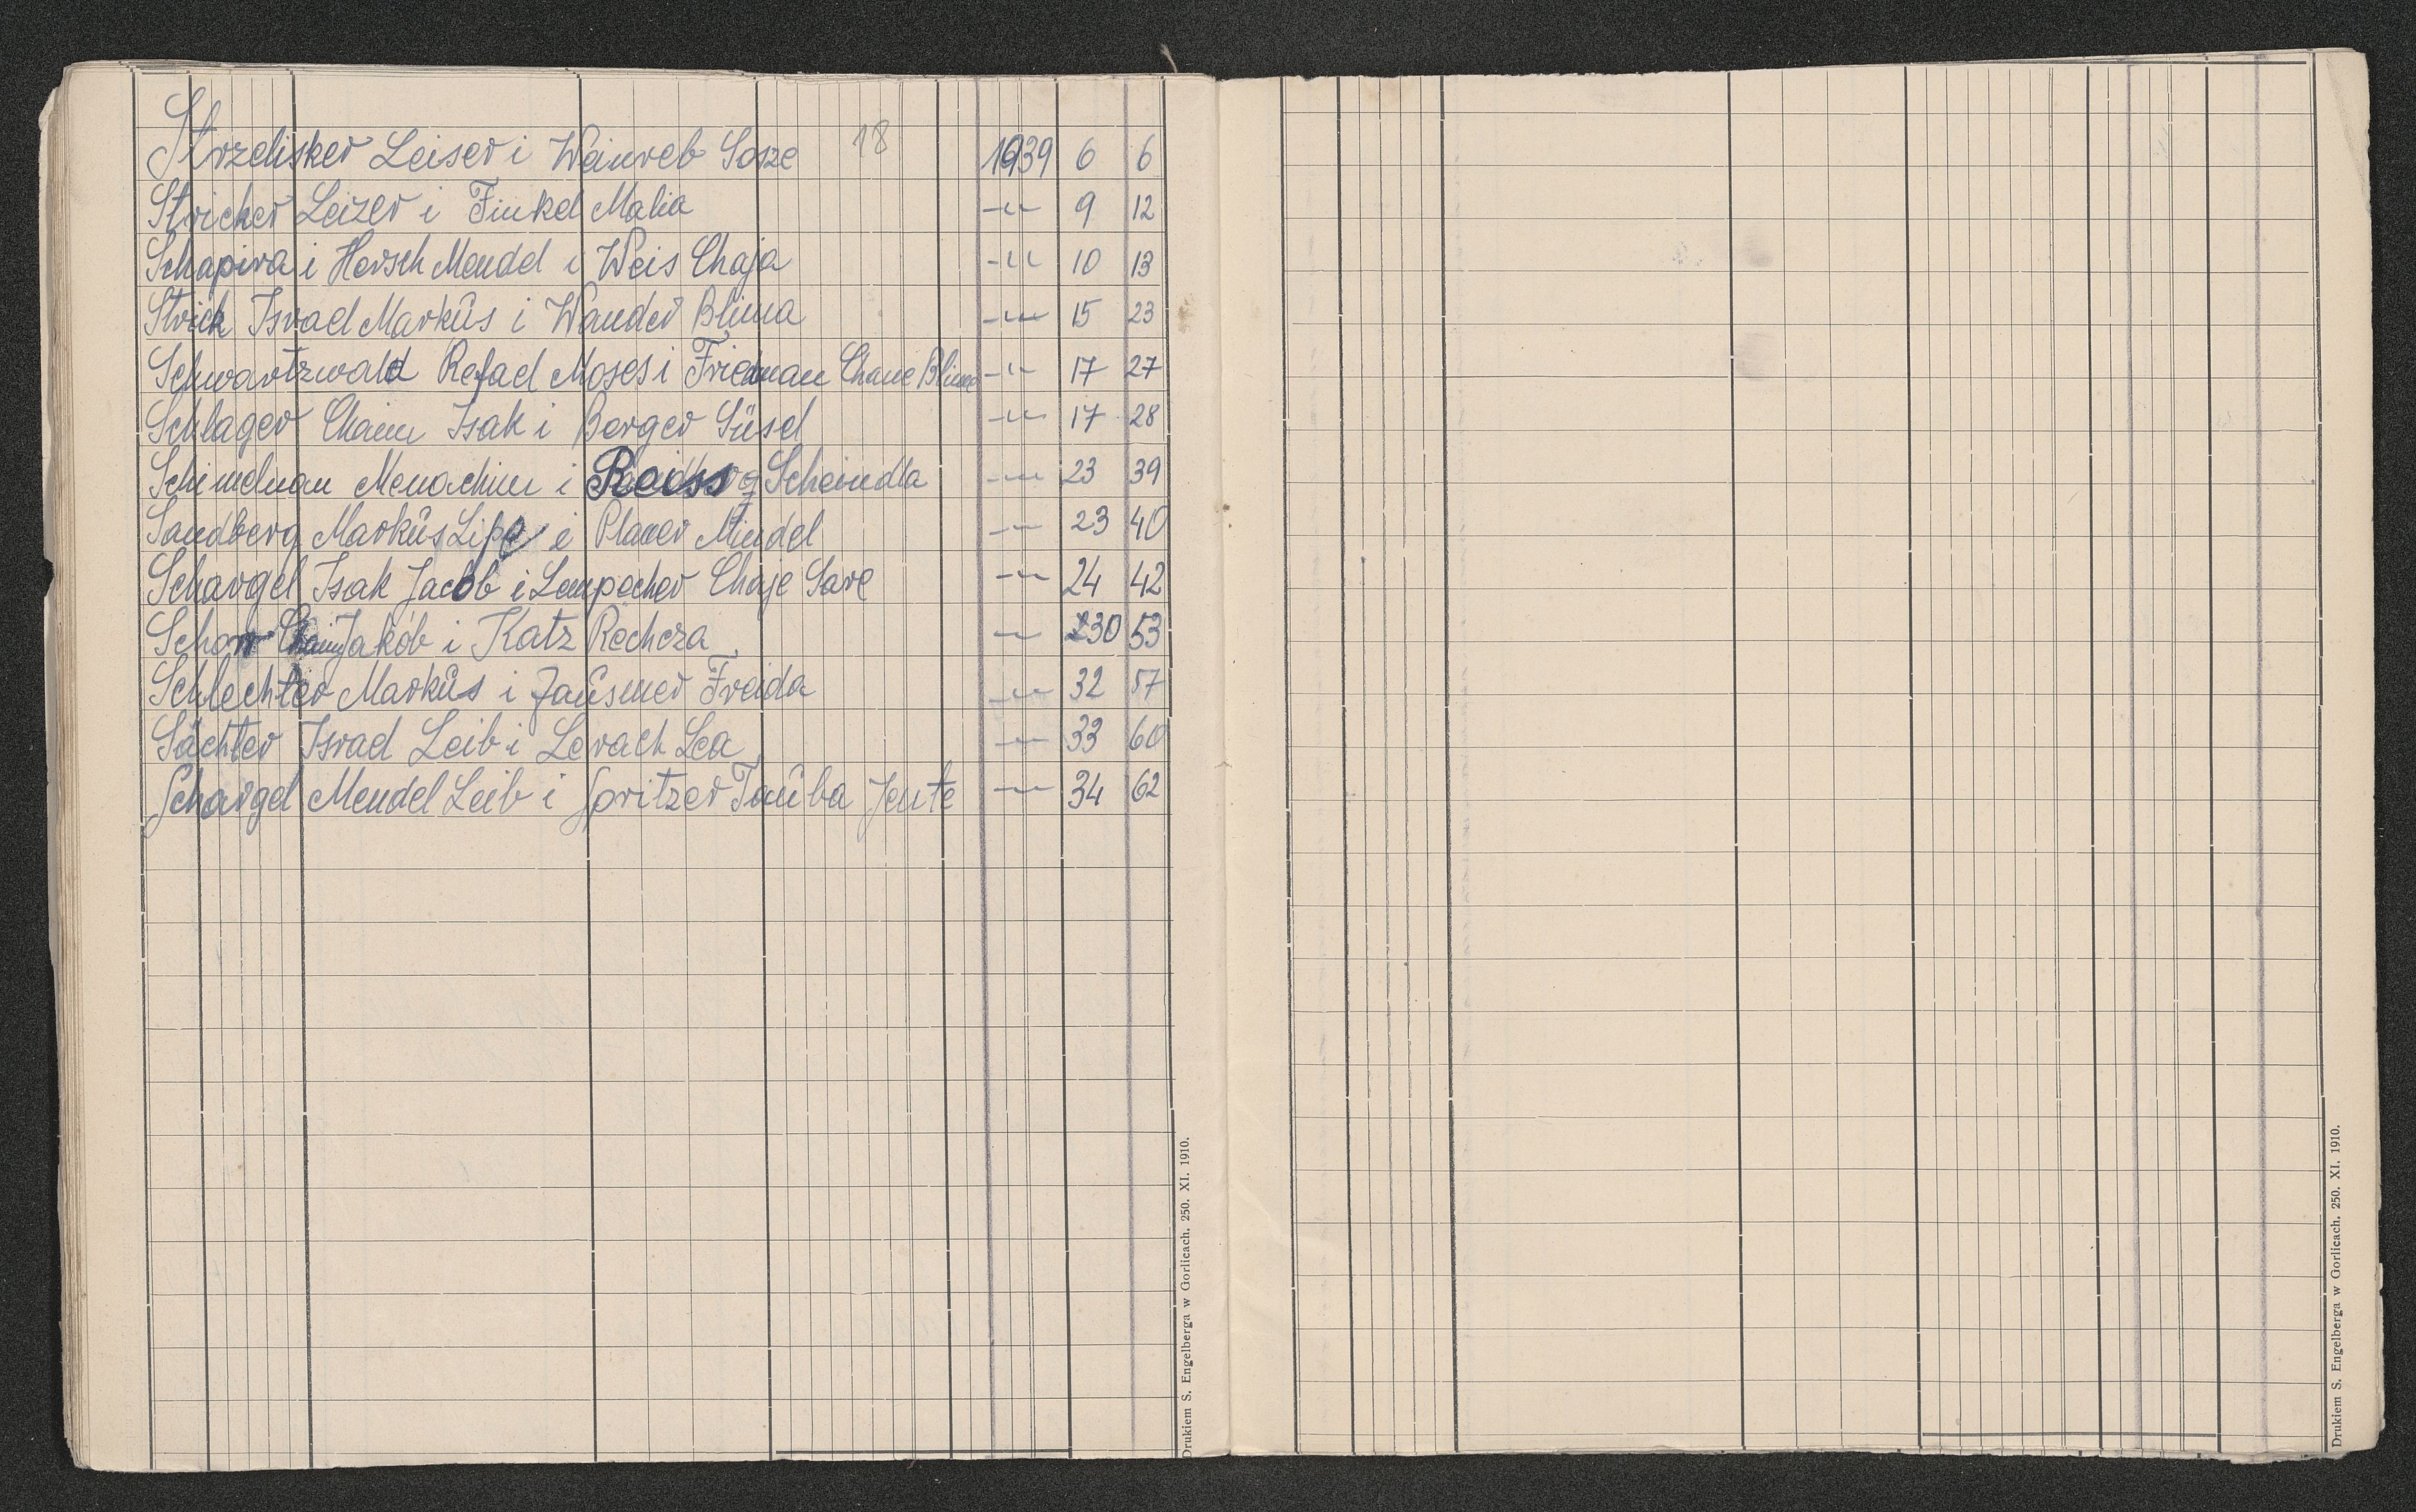 18
Strzelisker Leiser i Weinreb Sosze 1939 6 6
Stricker Leizer i Finkel Malia -"- 9 12
Schapira i Hersch Mendel i Weis Chaja -"- 10 13
Strick Israel Markus i Wander Blima -"- 15 23
Schwartzwald Refael Moses i Friedman Chane Blima -"- 17 27
Schlager Chaim Isak i Berger Süsel -"- 17 28
Schimelman Menachim i Reiss Scheindla -"- 23 39
Sandberg Markus Lipe i Planer Mindel -"- 23 40
Schargel Isak Jacob i Lempecher Chaje Sare -"- 24 42
Schorr Chaim Jakób i Katz Rechcza -"- 30 53
Schlechter Markus i Jausmer Freida -"- 32 57
Sächter Israel Leib i Lerach Lea -"- 33 60
Schargel Mendel Leib i Spritzer Tauba Jente -"- 34 62
Drukiem S. Engelberga w Gorlicach. 250. XI. 1910.
Drukiem S. Engelberga w Gorlicach. 250. XI. 1910.